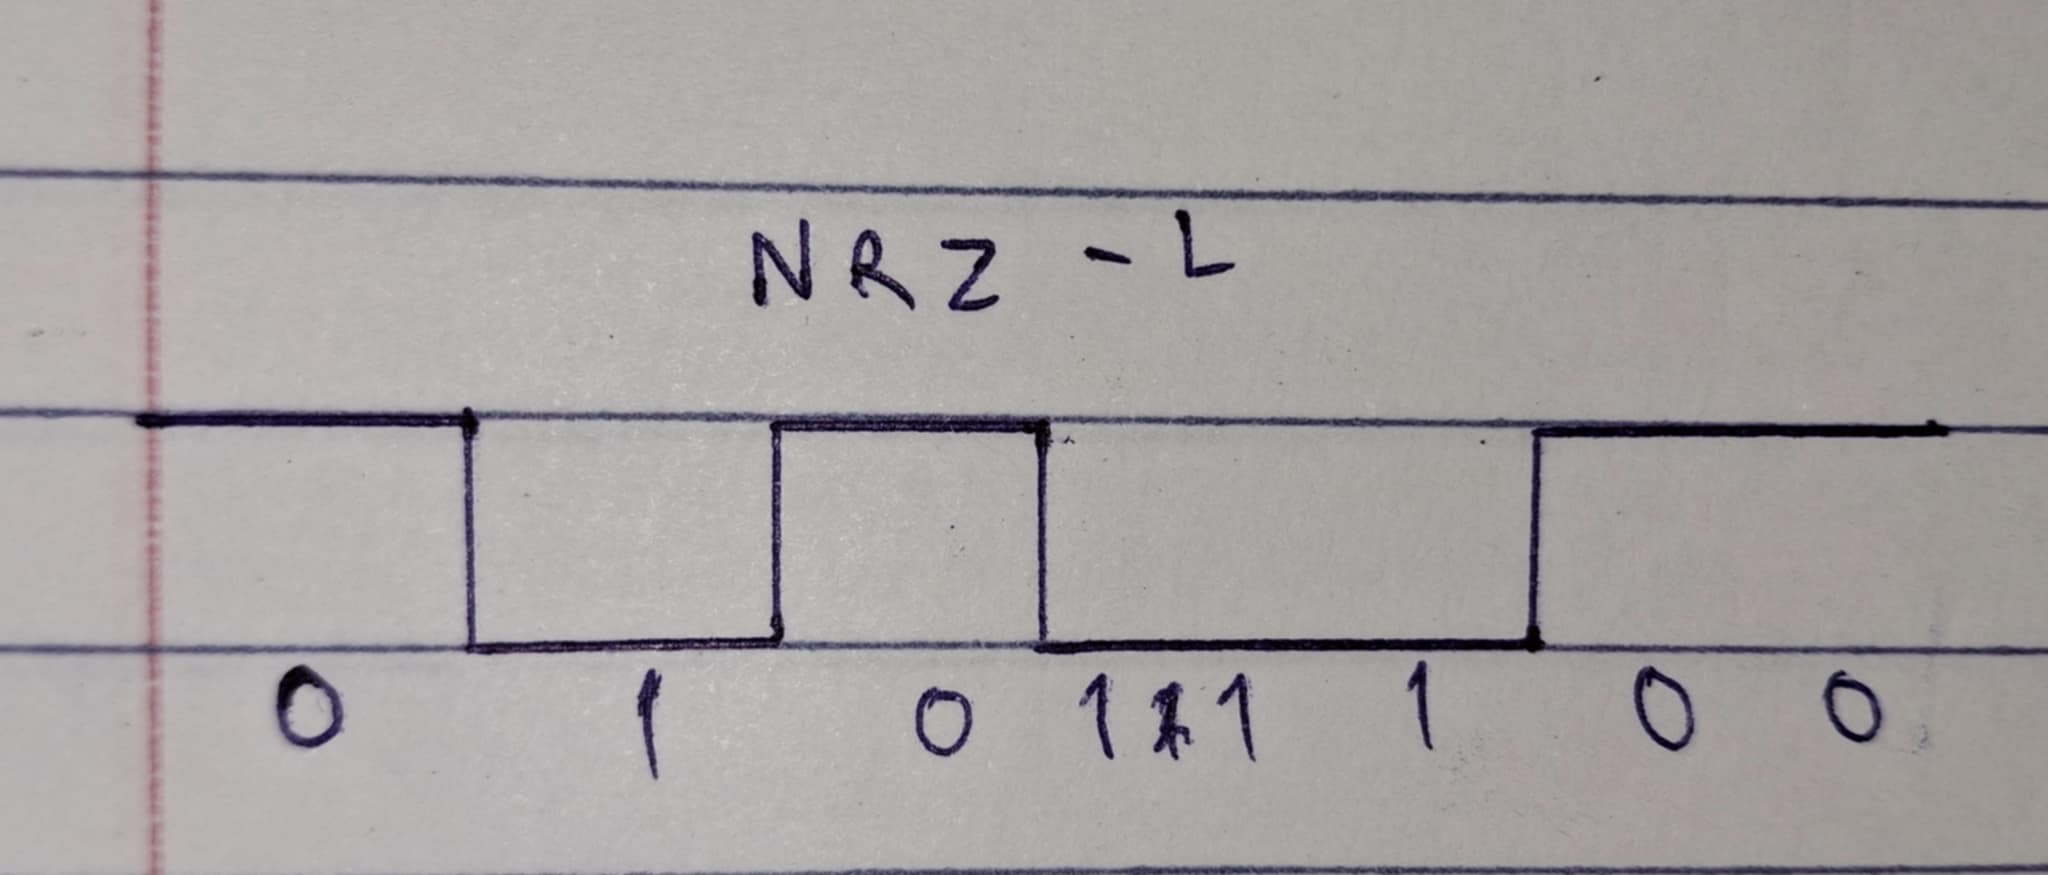 NRZ - L
0 1 0 1 1 1 0 0